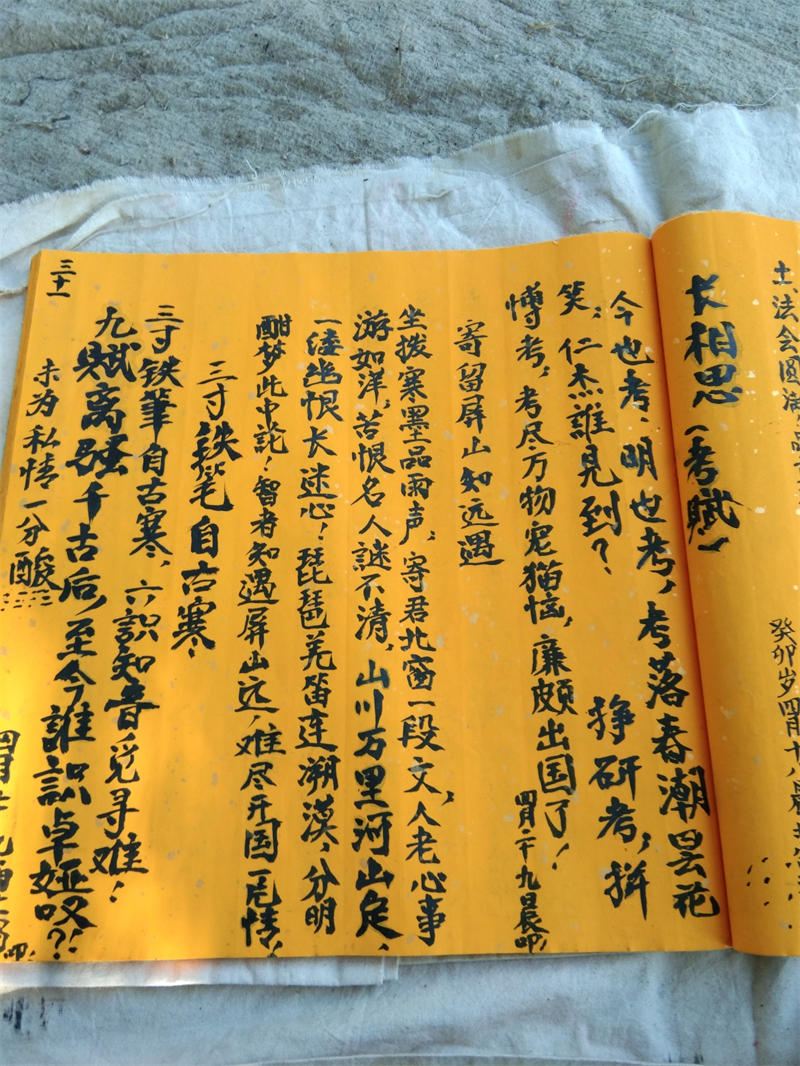 士法会圆满
癸卯岁四月十八晨
长相思（考赋）
今也考、明也考，考落春潮昙花
笑，仁杰誰见到？ 挣研考，拚
博考，考尽万物宠猫恼，廉颇出国了！
四月二十九日晨叩
寄留屏山知远遇
坐拨寒墨品雨声，寄君北窗一段文，人老心事
游如洋，苦恨名人謎不清，山川万里河山
一缕幽恨长迷心！琵琶羌笛连溯漠，分明
酣梦此中论！智者知遇屏山远，难尽开国一片情！
三寸铁笔自古寒
三寸铁筆自古寒，六識知音兑寻难！
九赋离骚千古后，至今誰識卓娅叹？！
未为私情一分酸
四月
叩
三十一